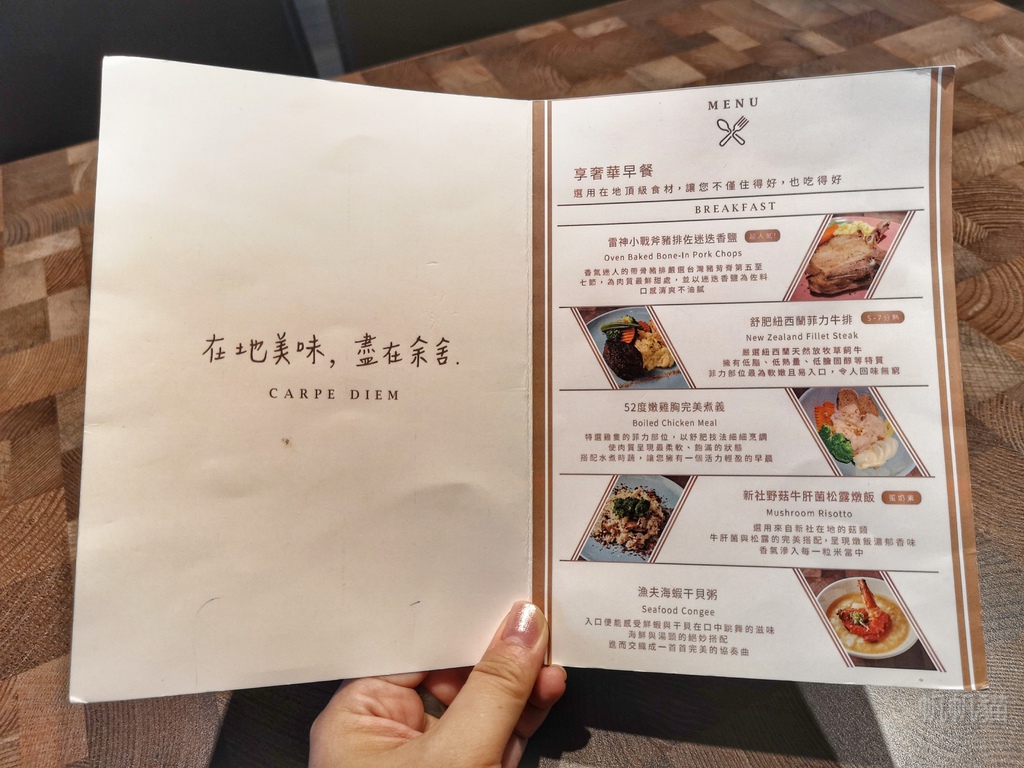 在地美味, 盡在余舍.
CARPE DIEM
MENU
享奢華早餐
選用在地頂級食材，讓您不僅住得好，也吃得好
BREAKFAST
雷神小戰斧豬排佐迷迭香鹽 超人氣!
Oven Baked Bone-In Pork Chops
香氣迷人的帶骨豬排嚴選台灣豬背脊第五至
七節，為肉質最鮮甜處，並以迷迭香鹽為佐料
口感清爽不油膩
舒肥紐西蘭菲力牛排 5-7分熟
New Zealand Fillet Steak
嚴選紐西蘭天然放牧草飼牛
擁有低脂、低熱量、低膽固醇等特質
菲力部位最為軟嫩且易入口，令人回味無窮
52度嫩雞胸完美煮義
Boiled Chicken Meal
特選雞隻的菲力部位，以舒肥技法細細烹調
使肉質呈現最柔軟、飽滿的狀態
搭配水煮時蔬，讓您擁有一個活力輕盈的早晨
新社野菇牛肝菌松露燉飯 蛋奶素
Mushroom Risotto
選用來自新社在地的菇類
牛肝菌與松露的完美搭配，呈現燉飯濃郁香味
香氣滲入每一粒米當中
漁夫海蝦干貝粥
Seafood Congee
入口便能感受鮮蝦與干貝在口中跳舞的滋味
海鮮與湯頭的絕妙搭配
進而交織成一首首完美的協奏曲